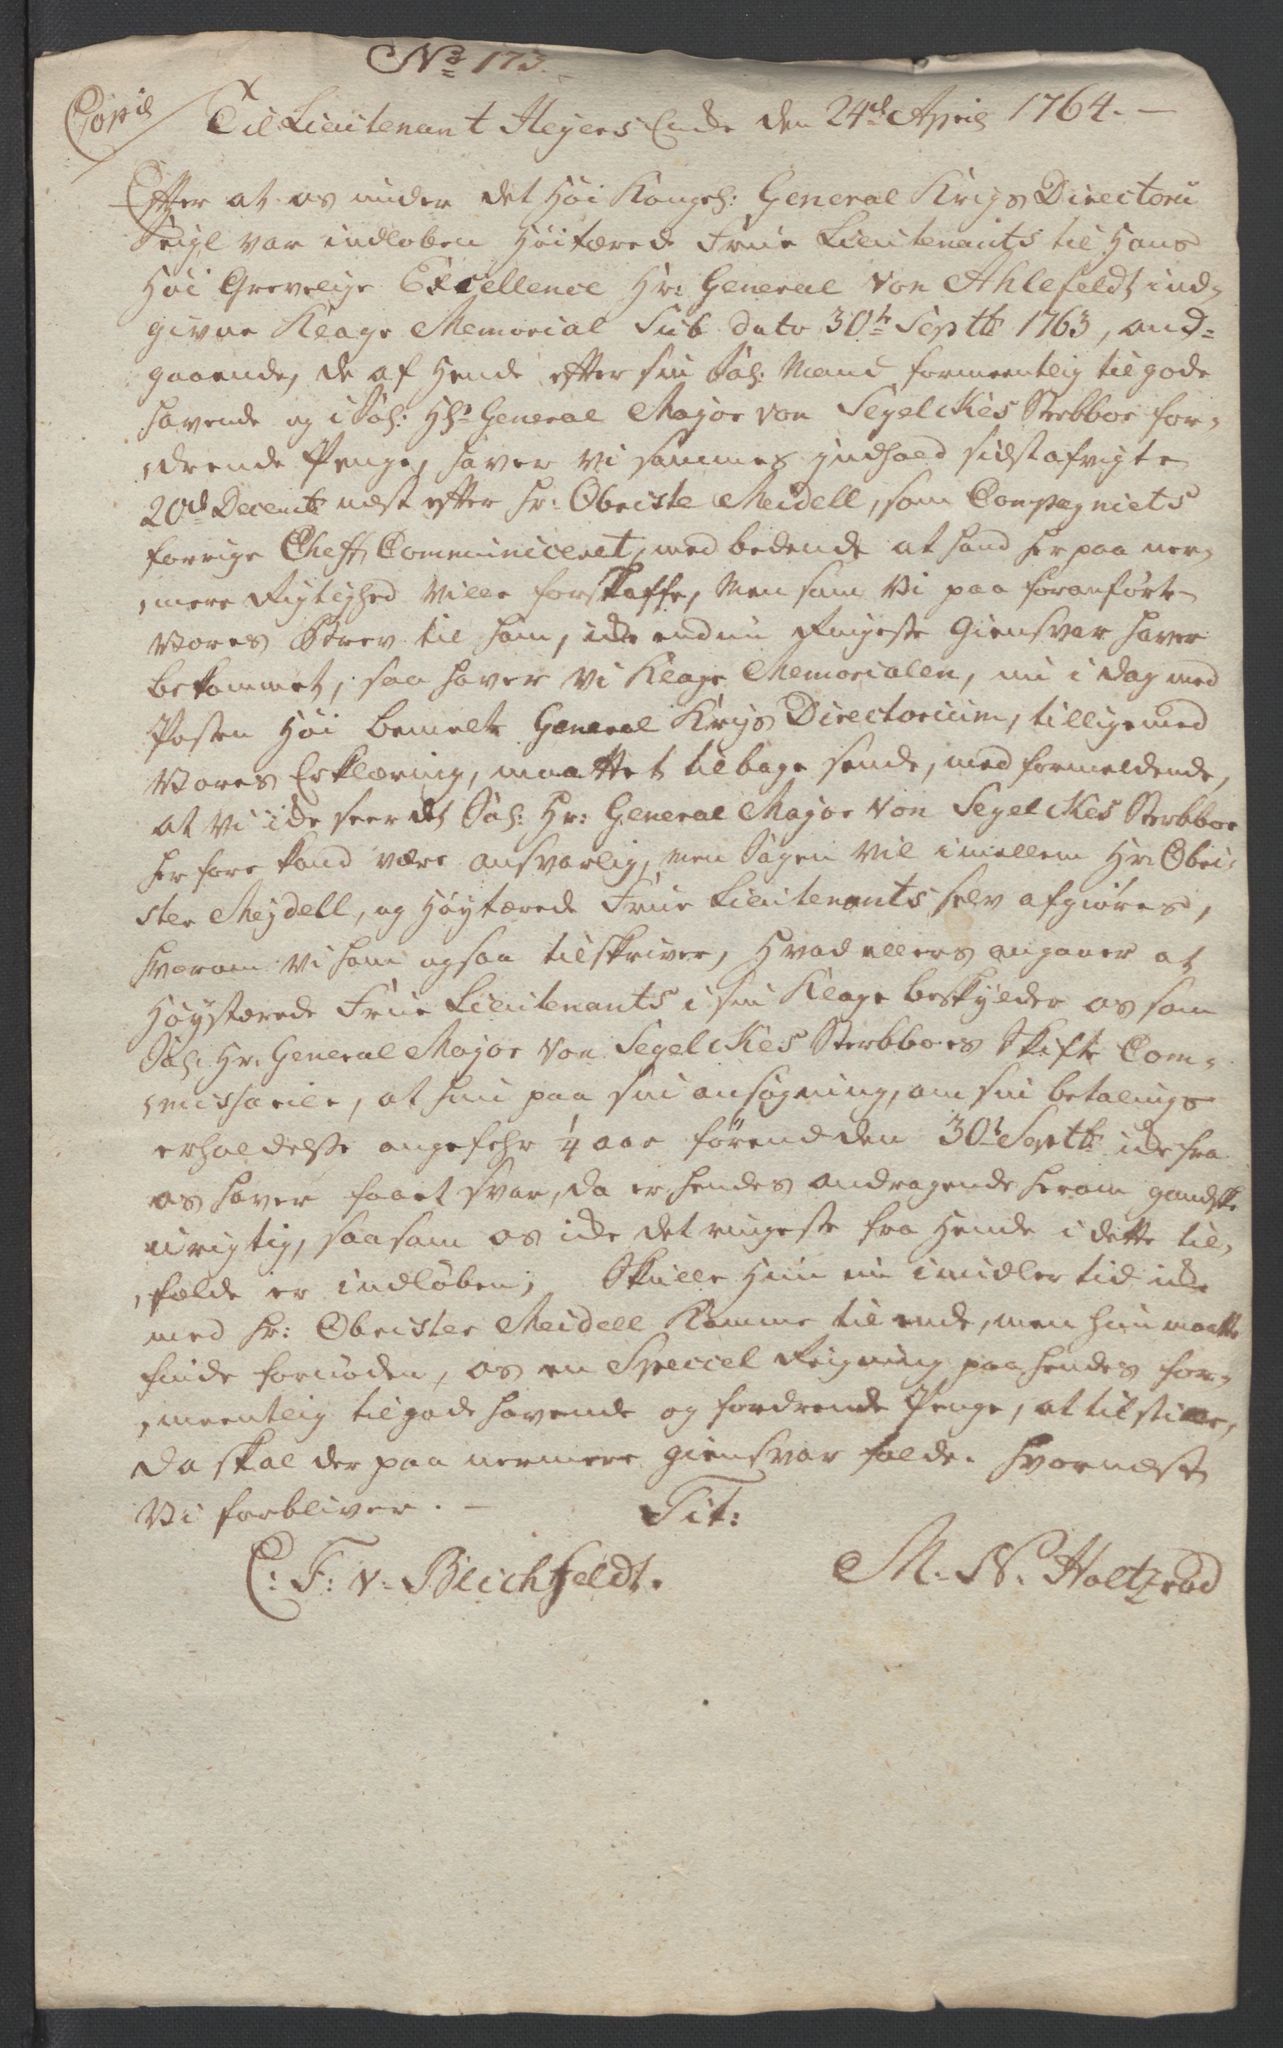 No 173.
Copie
Til Lieutenant Heyers Encke den 24de April 1764. —
Efter at os under det Høi Kongel: General Krigs Directorii
Seigl var indløben Høitærede Frue Lieutenants til Hans
Høi Grevelige Excellence Hr: General Von Ahlefeldt ind-
givne Klage Memorial Sub dato 30te Septbr 1763, and-
gaaende, de af Hende efter sin Sal: Mand formeentlig tilgode
havende og i Sal: Hr. General Major von Segelckes Sterbboe for-
drende Penge, haver vi sammes Indhold sidstafvigte
20de Decembr næst efter Hr: Obriste Meidell, som Compagniets
forrige Cheff Communiceret, med bedende at hand herpaa ner-
mere Rigtighed ville forskaffe, Men som Vi paa foranførte
Vores Brev til ham, icke endnu Ringeste Giensvar haver
bekommet, saa haver Vi Klage Memorialen, nu i dag med
Posten Høi bemelte General Krigs Directorium, tilligemed
Vores Erklæring, maattet tilbage sende, med formeldende,
at Vi icke seer dets Sal: Hr: General Major von Segelckes Sterbboe
herfore kand være ansvarlig, men Sagen vil imellem Hr: Obri-
ster Meydell, og Høytærede Frue Lieutenants selv afgiøres,
hvorom Vi ham ogsaa tilskriver, Hvad ellers angaaer at
Høystærede Frue Lieutenants i sin Klage beskylder os som
Sal: Hr: General Major von Segelckes Sterbboes Skifte Com-
missarier, at hun paa sin ansøgning, om sin betalings
erholdelse ongefehr 1/4 aar førend den 30te Septbr icke fra
os haver faaet svar, da er hendes andragende herom gandske
urigtig, saasom os icke det ringeste fra Hende i dette til-
fælde er indløben, Skulle Hun nu imidlertid icke
med Hr: Obrister Meidell komme til ende, men hun maatte
finde fornøden, os en Speciel Reigning paa hendes for-
meentlig tilgode havende og fordrende Penge, at tilstille,
da skal der paa nermere giensvar falde. Hvornest
Vi forbliver. — Tit:
C: F: v: Blichfeldt. M. N. Holtzrod